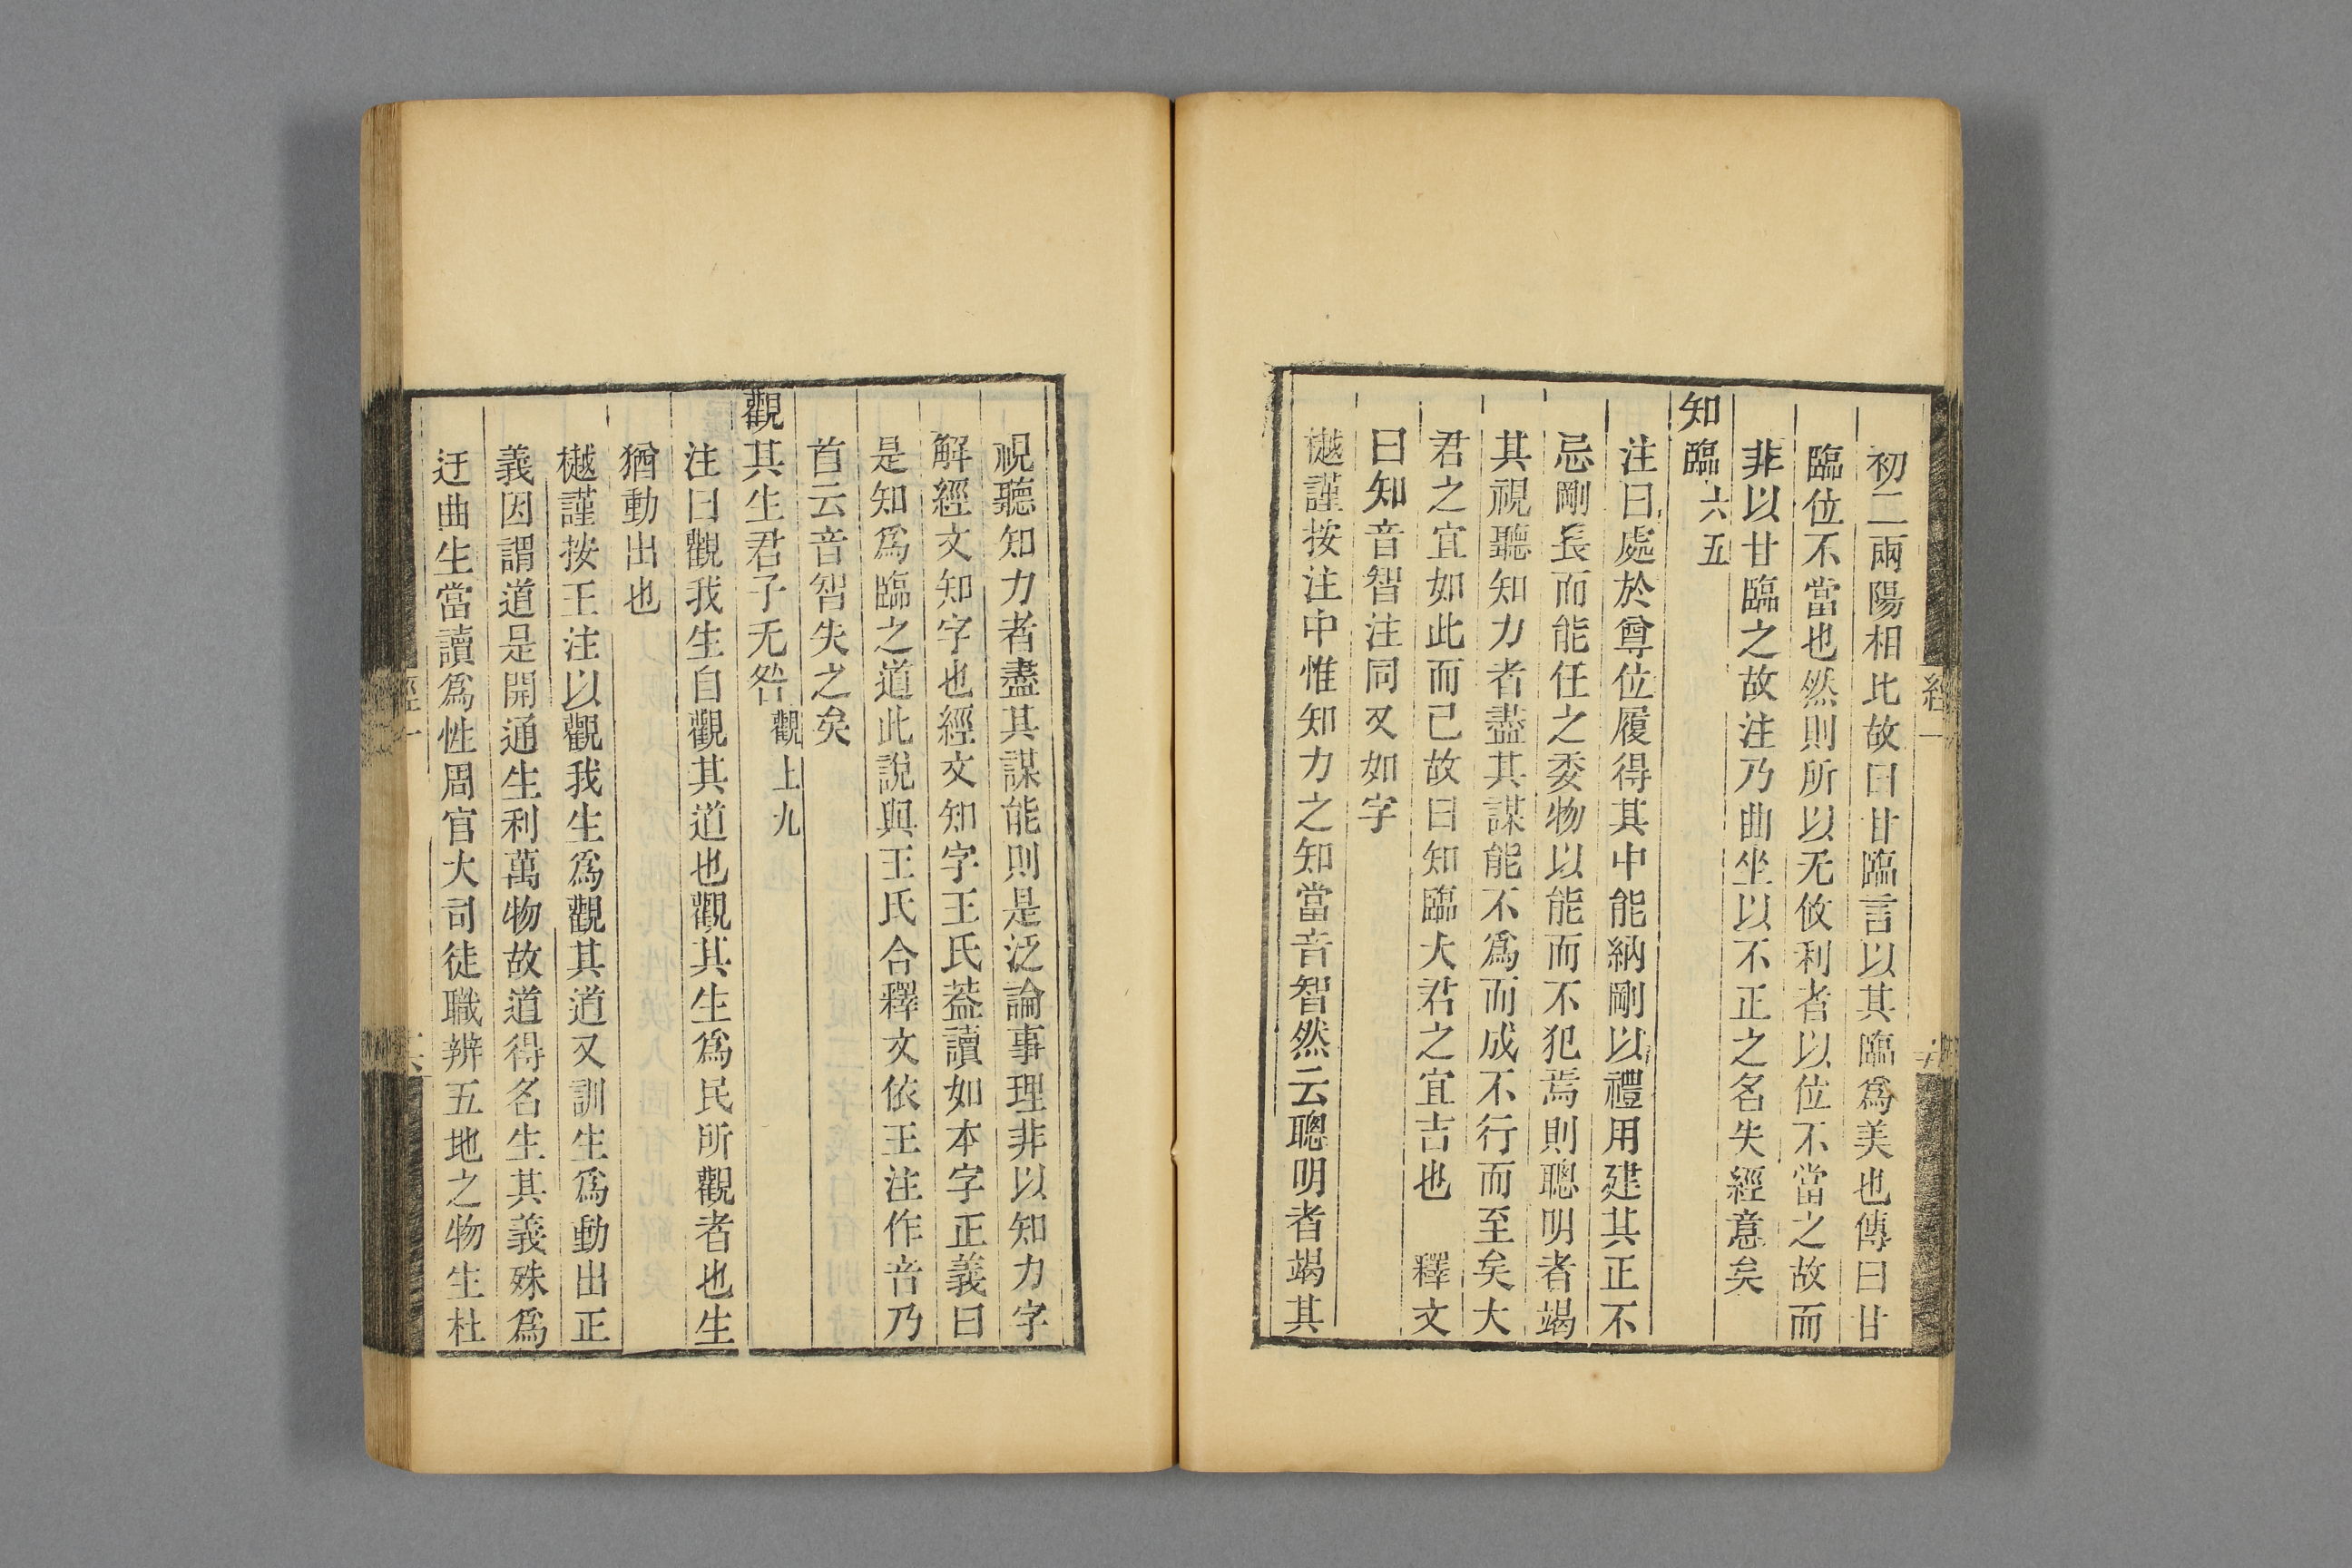 初二兩陽相比故曰甘臨言以其臨爲美也傳曰甘
臨位不當也然則所以无攸利者以位不當之故而
非以甘臨之故注乃曲坐以不正之名失經意矣
知臨六五
注曰處於尊位履得其中能納剛以禮用建其正不
忌剛長而能任之委物以能而不犯焉則聰明者竭
其視聽知力者盡其謀能不爲而成不行而至矣大
君之宜如此而已故曰知臨大君之宜吉也 釋文
曰知音智注同又如字
樾謹按注中惟知力之知當音智然云聰明者竭其
視聽知力者盡其謀能則是泛論事理非以知力字
解經文知字也經文知字王氏葢讀如本字正義曰
是知爲臨之道此說與王氏合釋文依王注作音乃
首云音智失之矣
觀其生君子无咎觀上九
注曰觀我生自觀其道也觀其生爲民所觀者也生
猶動出也
樾謹按王注以觀我生爲觀其道又訓生爲動出正
義因謂道是開通生利萬物故道得名生其義殊爲
迂曲生當讀爲性周官大司徒職辨五地之物生杜
經一